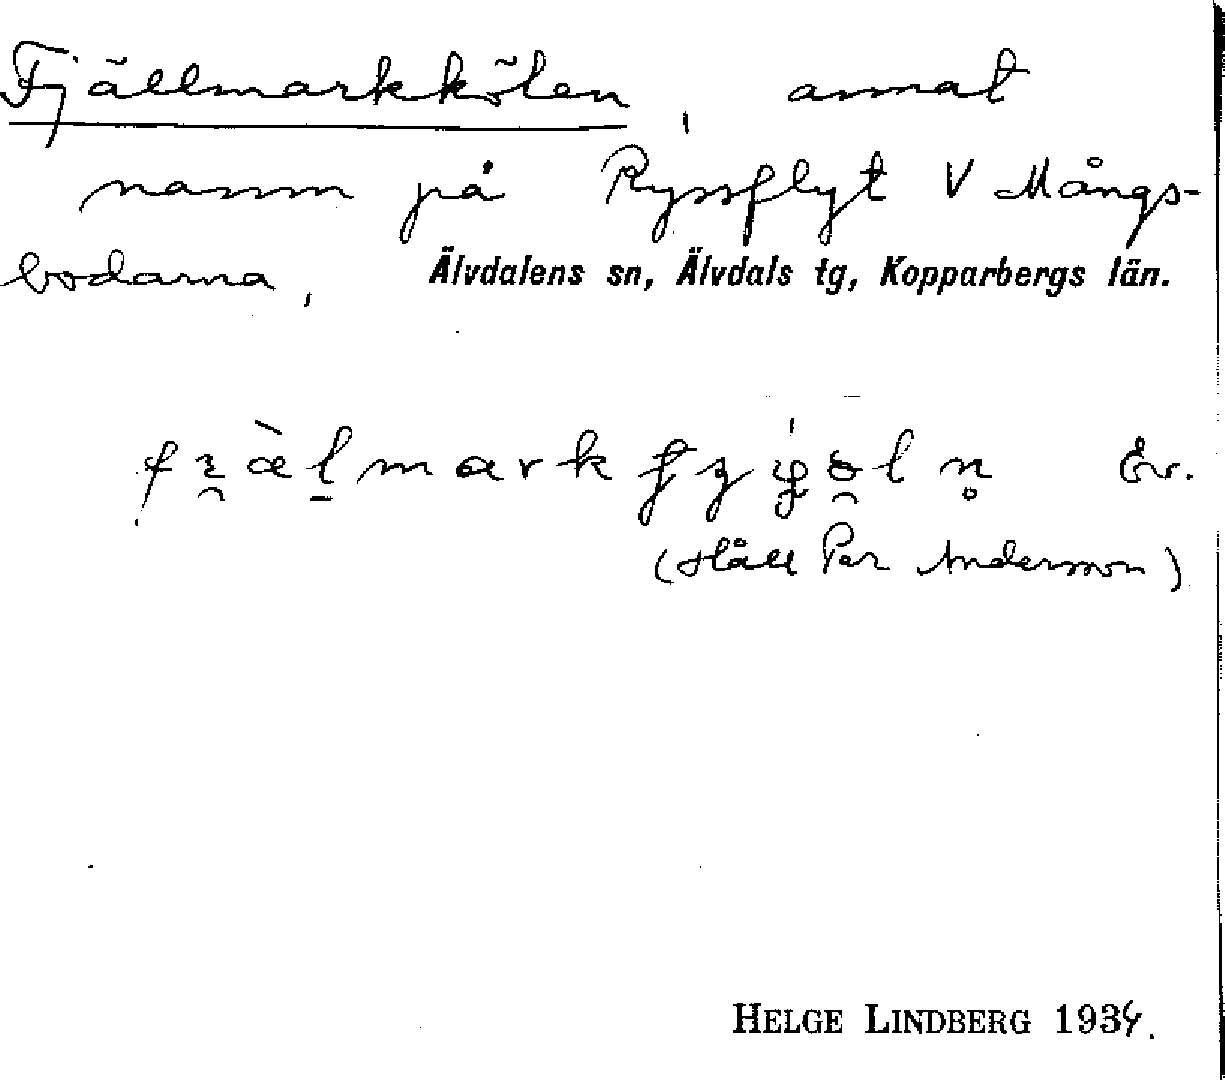 Fjällmarkkölen, annat
namn på Ryssflyt V Mångs-
bodarna, Älvdalens sn, Älvdals tg, Kopparbergs län.
Ev.
(Håll Per Andersson)
HELGE LINDBERG 1934.